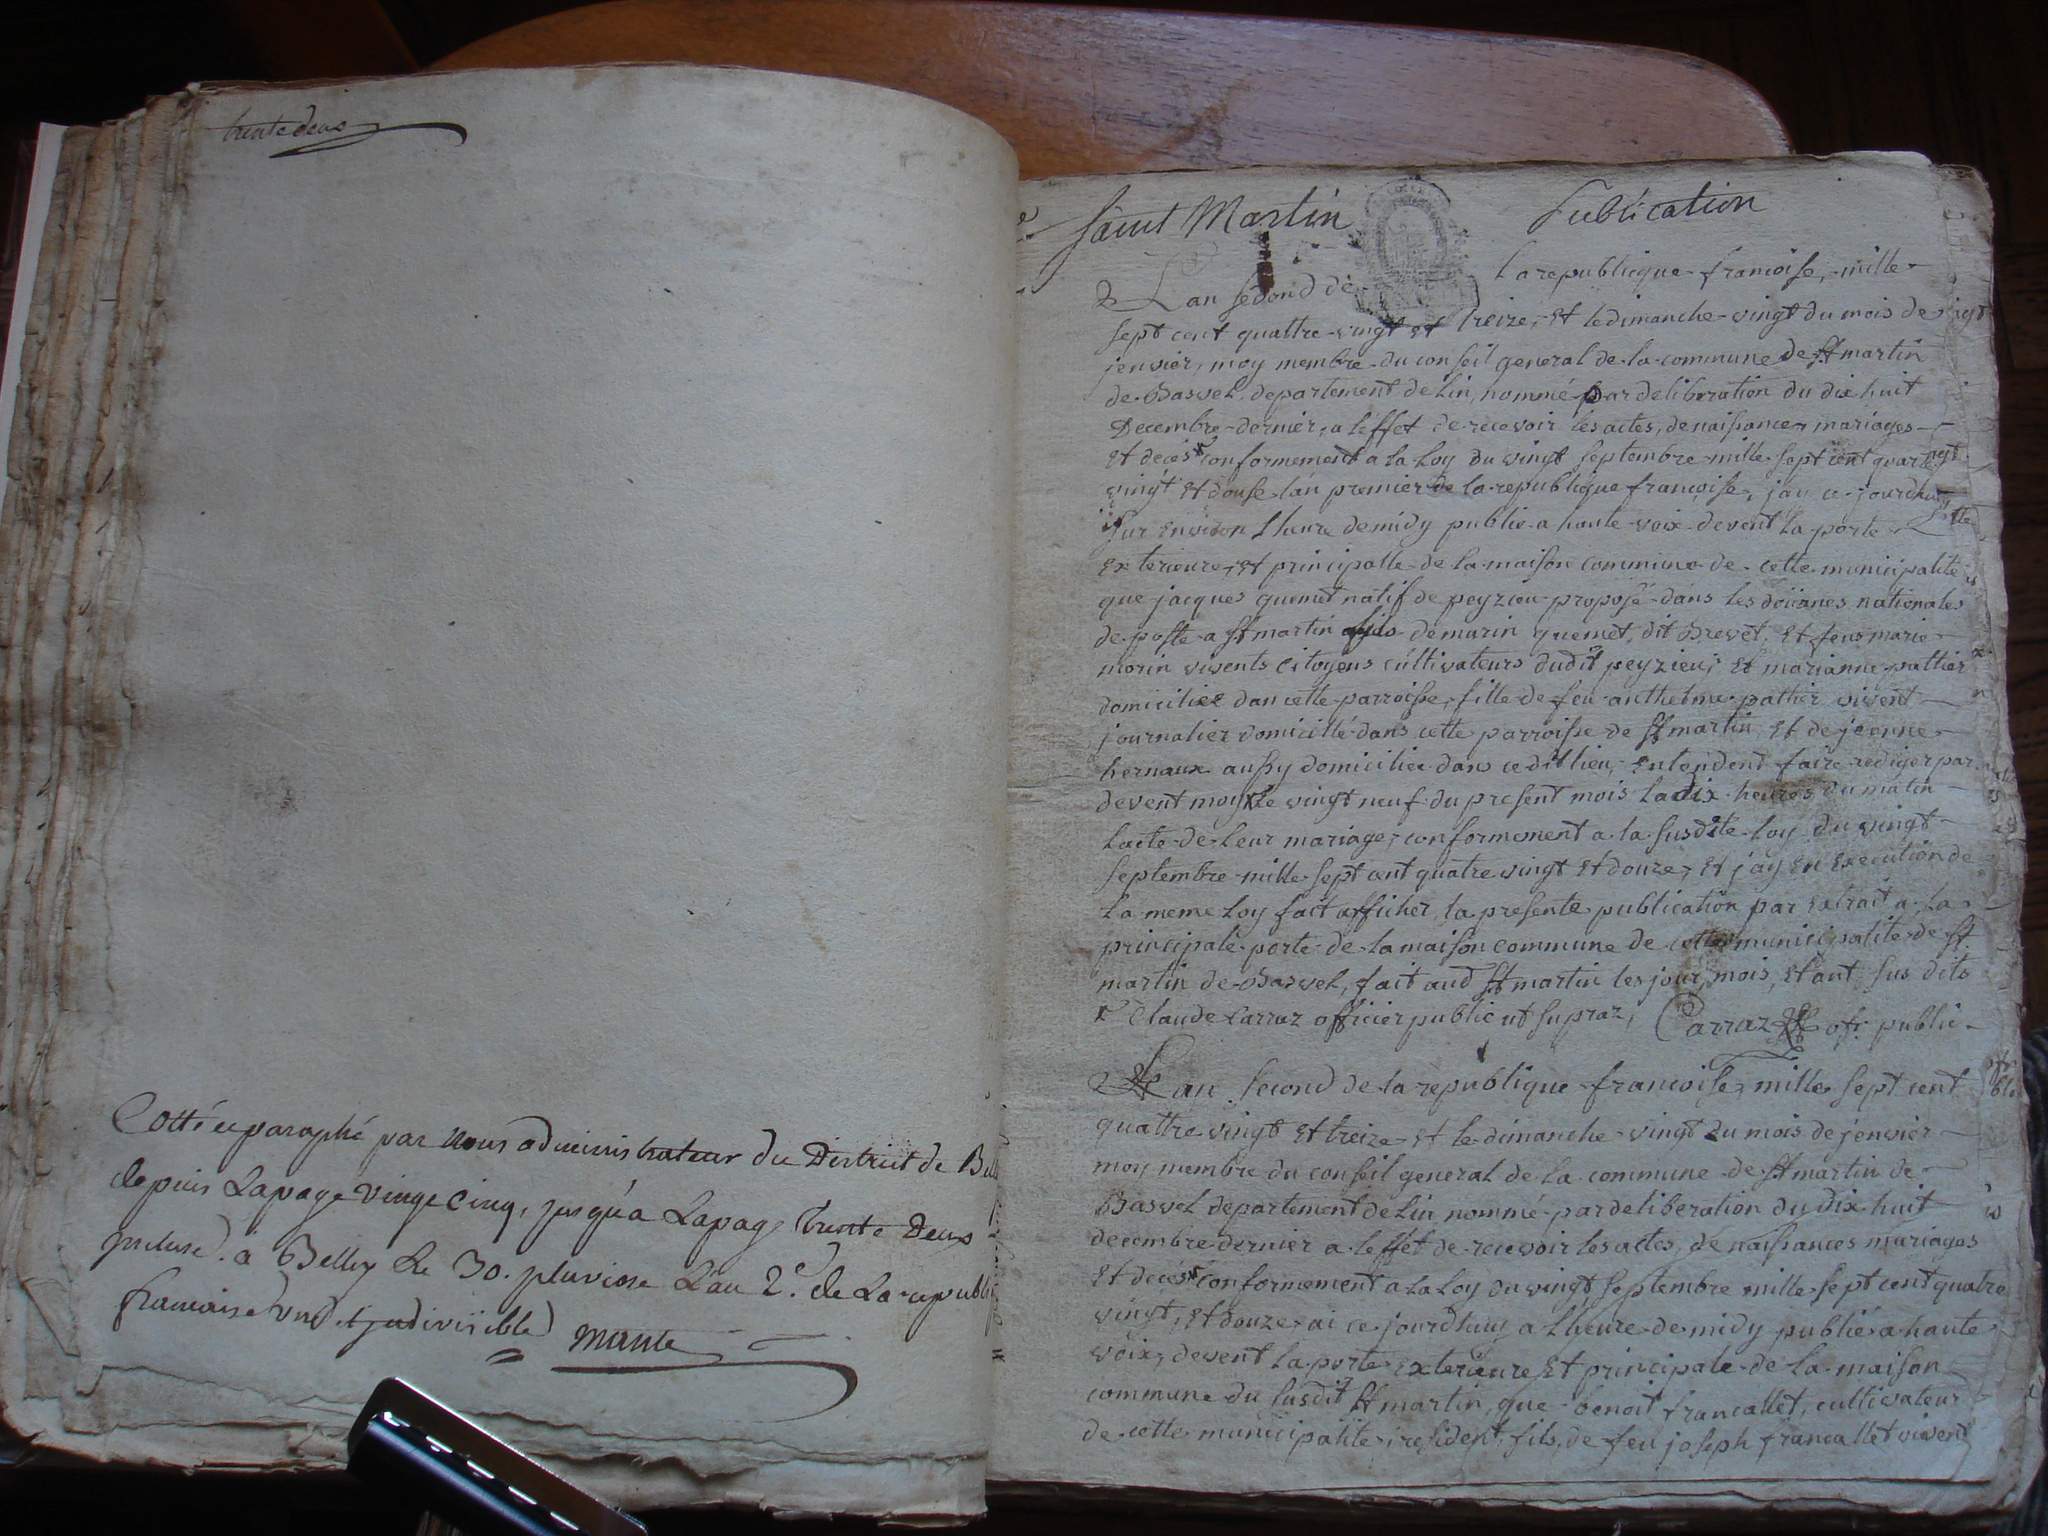 trente deux
Cotté et paraphé par nous administrateur du District de
depuis la page vingt cinq, jusqu'a la page trente Deux
incluse. a Belley Le 30. pluviose L'an 2.e de La republi
francaise une et indivisible
Saint Martin
Publication
Lan second de la republicque francoise, mille
sept cent quattre vingt et treize, et le dimanche vingt du mois de
jenvier, moy membre du conseil general de la commune de St martin
de Bavel departement de Lin, nommé par deliberation du dix huit
Decembre dernier, a leffet de recevoir les actes, de naissances mariages
Et decés conformement a la Loy du vingt septembre mille sept cent
vingt et douse lan premier de la republique francoise, jai ce jourdhuy
sur environ Lheure de midy publie a haute voix devent la porte
Exterieure, Et principalle de la maison commune de cette municipalite
que jacques quemet natif de peyzieu proposé dans les doüanes nationales
de poste a St martin fils de marin quemet, dit Brevet, Et feue marie
morin vivents citoyens cultivateurs dudit peyzieu, Et marianne pattier
domiciliee dan cette parroisse, fille de feu anthelme pattier vivent
journalier domicilié dans cette parroisse de St martin, Et de jeanne
hernaux aussy domiciliée dans cedit lieu, entendent faire rediger par
devent moy le vingt neuf du present mois La dix heures du matin
Lacte de Leur mariage, conformement a la susdite Loy du vingt
septembre mille sept cent quatre vingt Et douze, Et jay En Execution de
La meme Loy fait afficher, la presente publication par extrait a La
principale porte de la maison commune de cette municipalite de St
martin de Bavel, fait aud St martin les jour, mois, Et ant sus dits
Claude Carraz officier public ut supraz, Carraz ofr. public
Lan second de la republique francoise, mille sept cent
quattre vingt Et treize Et le dimanche vingt du mois de jenvier
moy membre du conseil general de la commune de St martin de
Bavel departement de Lin nommé par deliberation du dix huit
decembre dernier a leffet de recevoir les actes, de naissances mariages
Et decés conformement a La Loy du vingt septembre mille sept cent quatre
vingt, Et douze ai ce jourdhuy a Lheure de midy publié a haute
voix, devent La porte Exterieure Et principale de la maison
commune du susdit St martin, que benoit francallet, cultivateur
de cette municipalite, resident, fils de feu joseph francallet vivent